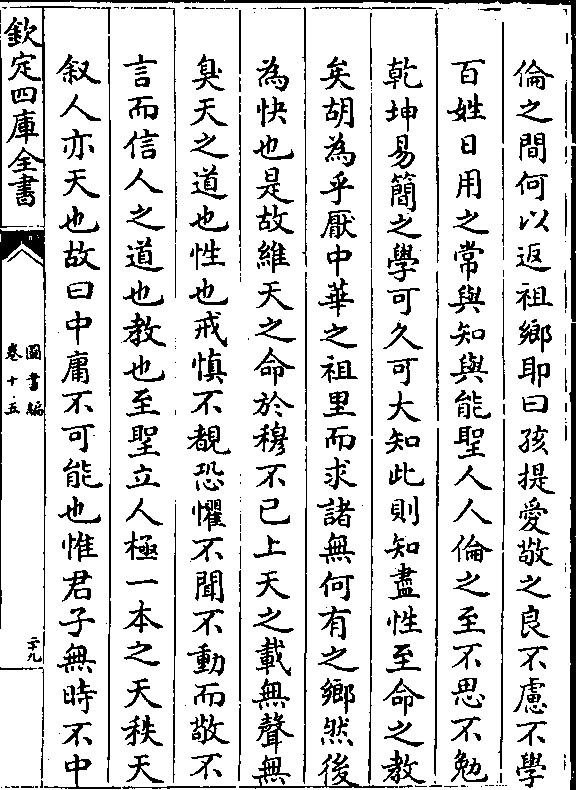 倫之間何以返祖鄉耶曰孩提愛敬之良不慮不學
百姓日用之常與知與能聖人人倫之至不思不勉
乾坤易簡之學可久可大知此則知盡性至命之教
矣胡為乎厭中華之祖里而求諸無何有之鄉然後
為快也是故維天之命於穆不已上天之載無聲無
臭天之道也性也戒慎不覩恐懼不聞不動而敬不
言而信人之道也教也至聖立人極一本之天秩天
叙人亦天也故曰中庸不可能也惟君子無時不中
欽定四庫全書
圖書編
卷十五
二十九